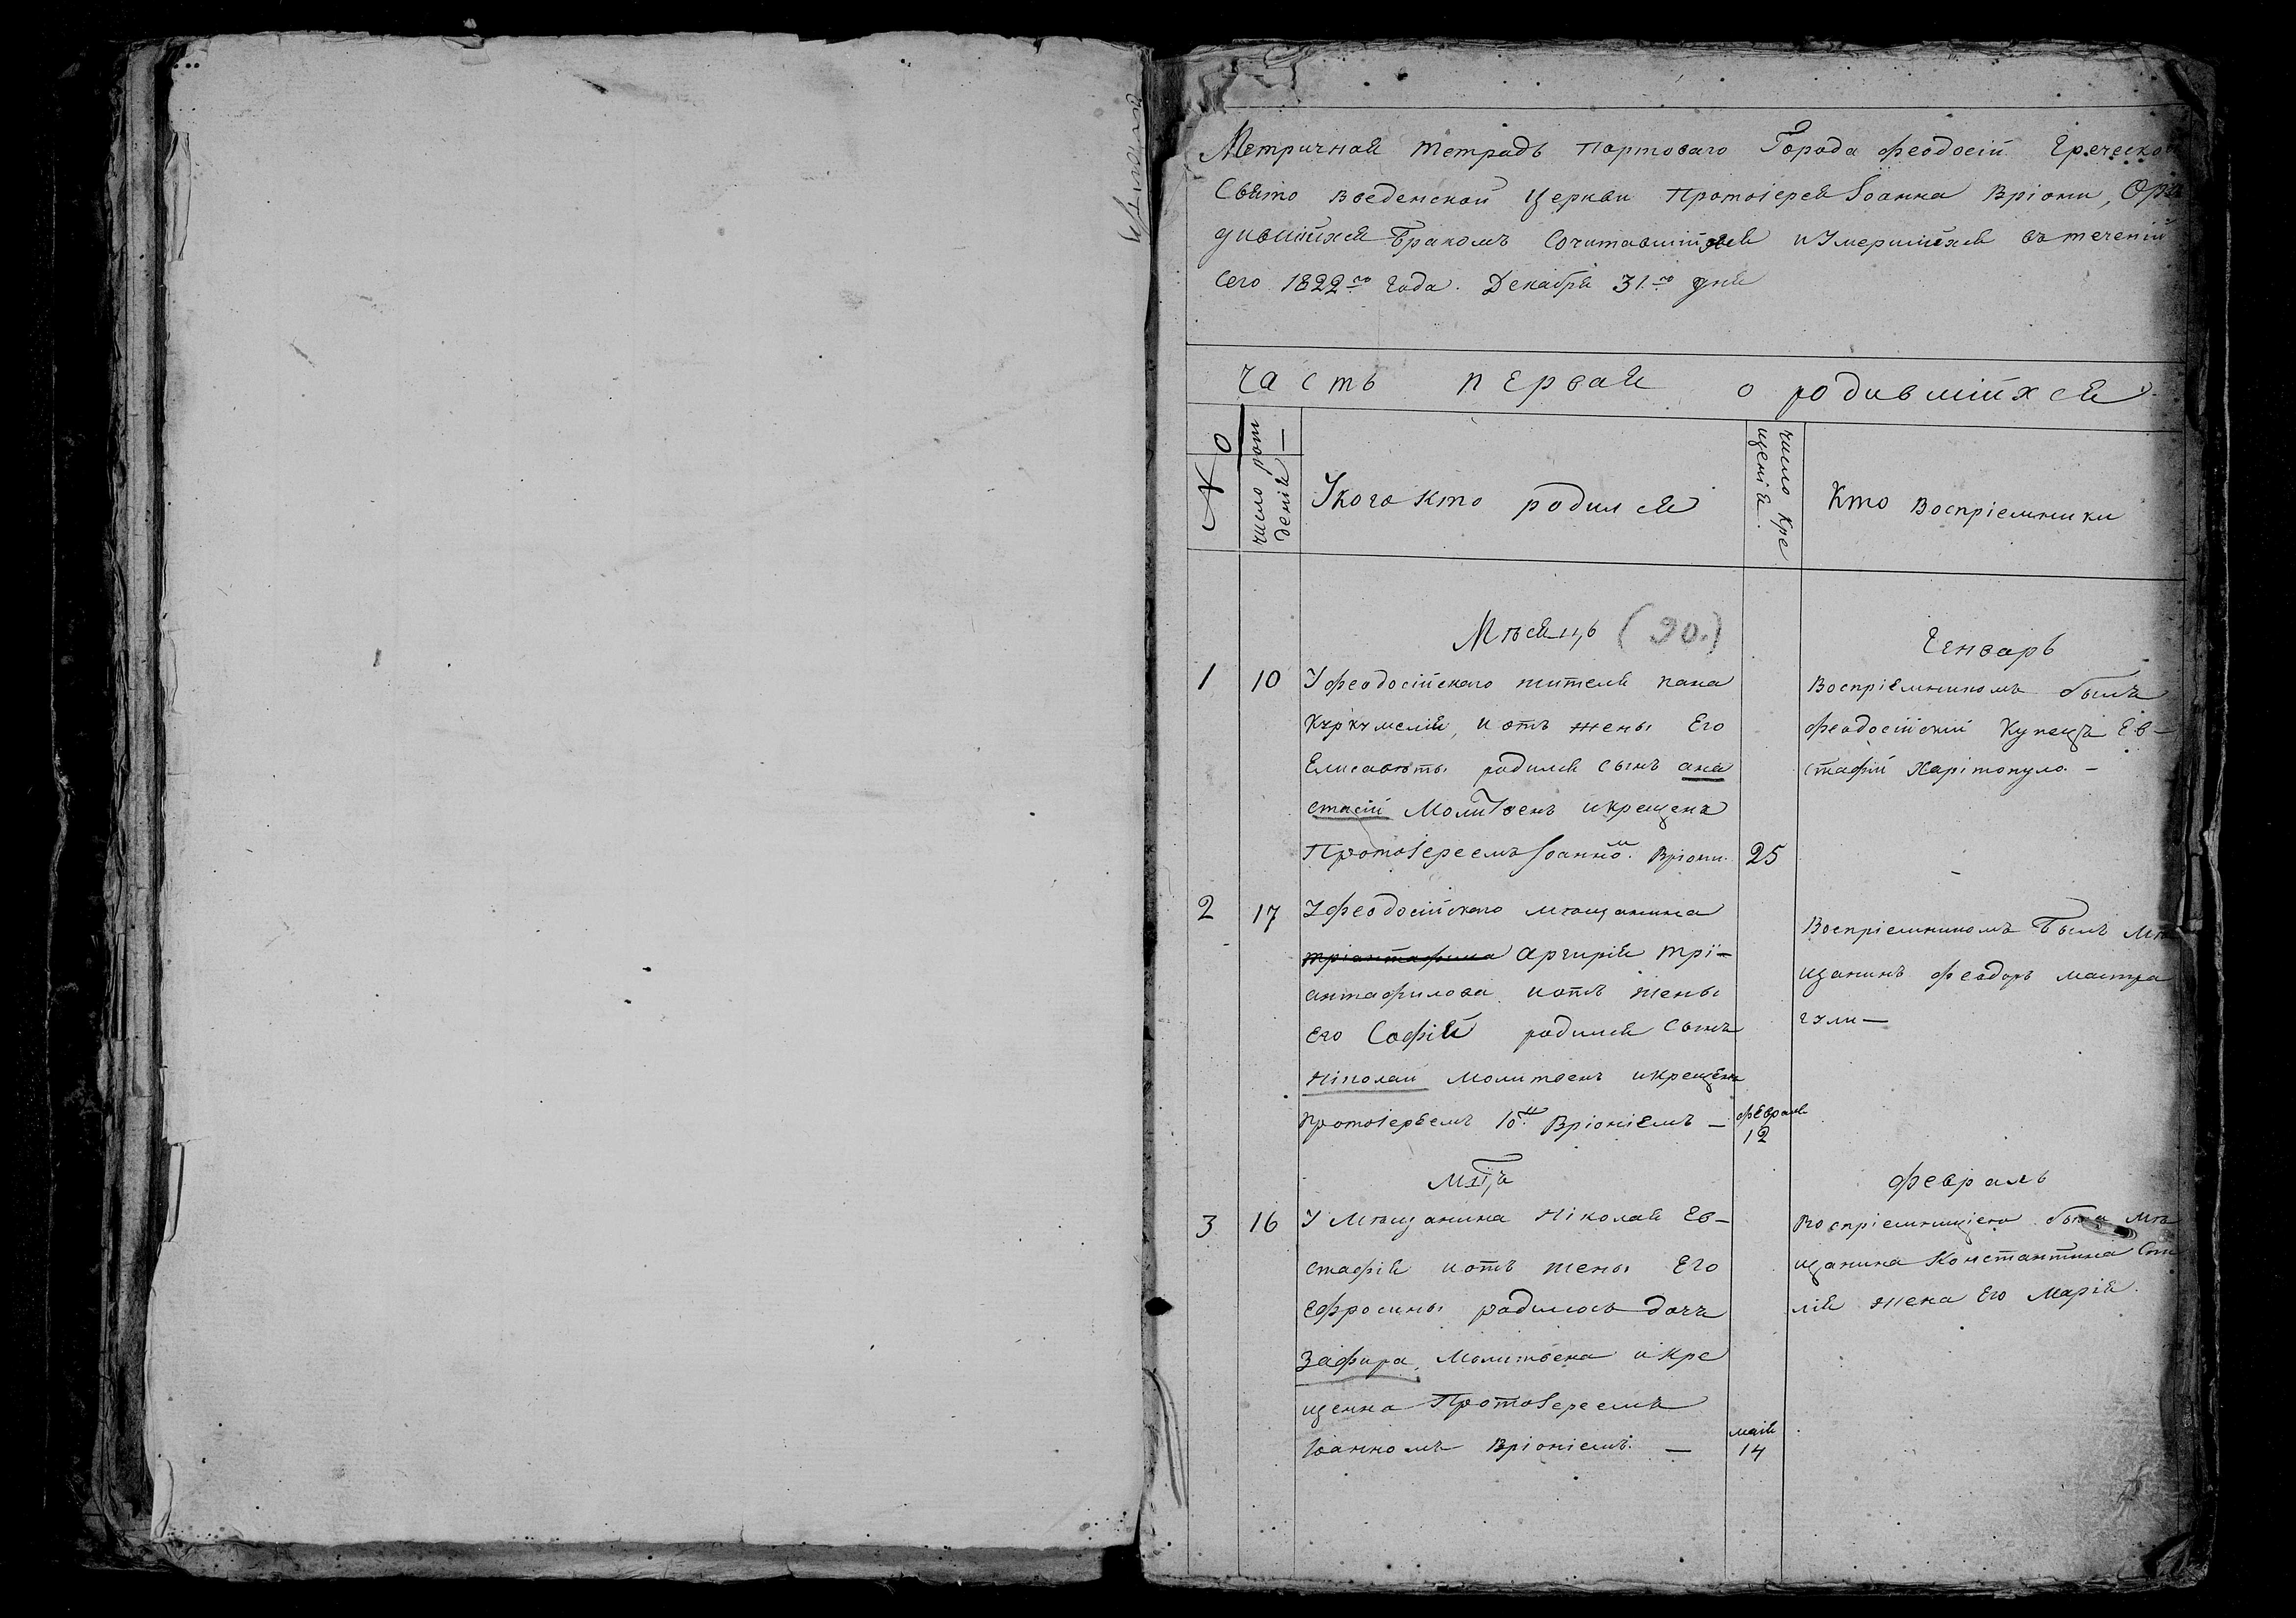 Метричная тетрадь Портоваго Города Феодосіи Греческой
Свято Введенской Церкви Протоіерея Іоанна Вріони, О ро
дившійхся Бракомъ Сочитавшійхся и Умершійхся въ теченій
Сего 1822го Года. Декабря 31го дня
часть первая о родившійхся
№
число рож
денія
У кого кто родился
число кре
щенія.
Кто воспріемники
Мѣсяцъ (90.) Генварь
1 10 У феодосійскаго жителя пана
Куркумелія, и отъ жены Его
Елисаветы родился сынъ ана
стасій Молитвенъ и крещенъ
Протоіереемъ Іоанномъ. Вріони. 25
Воспріемникомъ былъ
феодосійскій Купецъ Ев-
стафій Харітопуло. -
2 17 У феодосійскаго мѣщанина
тріантафила Аргирія Трі-
антафилова и отъ жены
его Софіи родился Сынъ
Ніколай Молитвенъ и крещенъ
Протоіереемъ Іон. Вріоніемъ - февраля
12
Воспріемникомъ Былъ Мѣ
щанинъ феодоръ мастра
гули -
Мцъ февраль
3 16 У Мѣщанина Ніколая Ев-
стафія и отъ жены Его
Ефросины родилась дочъ
Зафира, Молитвена и Кре
щенна Протоіереемъ
Іоанномъ Вріоніемъ. - маія
14
Воспріемницею была Мѣ
щанина Константина
лія жена Его Марія.